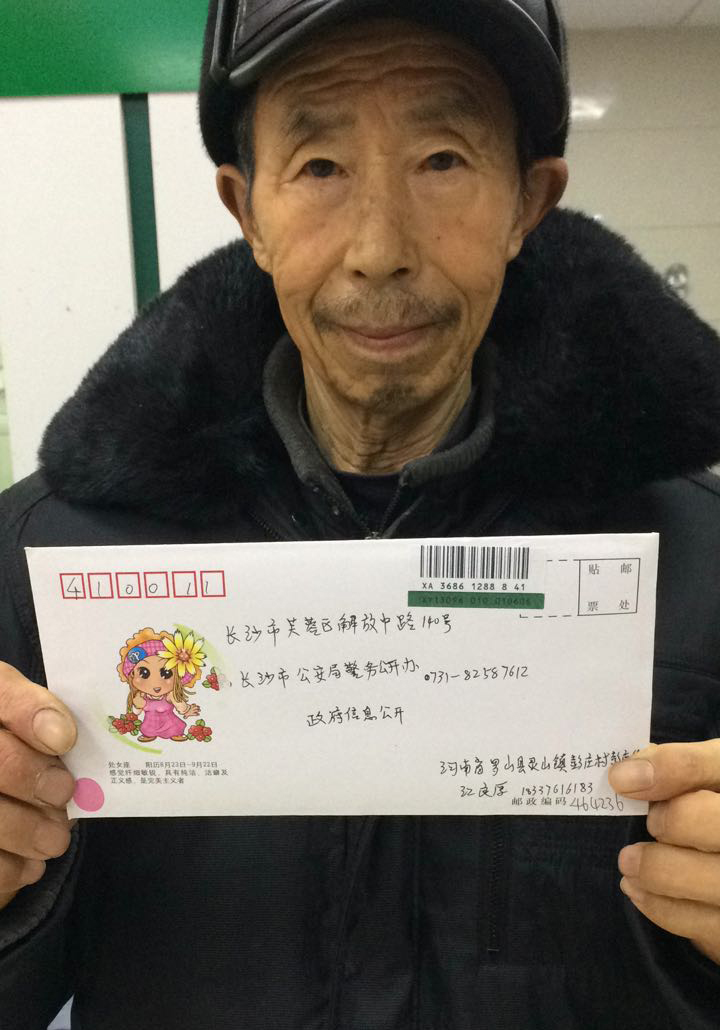 410011
XA 3686 1288 8 41
贴 邮
票 处
长沙市芙蓉区解放中路140号
长沙市公安局警务公开办 0731-82587612
政府信息公开
处女座 阳历8月23日~9月22日
感觉纤细敏锐，具有纯洁、洁癖及
正义感，是完美主义者
河南省罗山县灵山镇彭庄村彭
江良厚 18337616183
邮政编码 464236